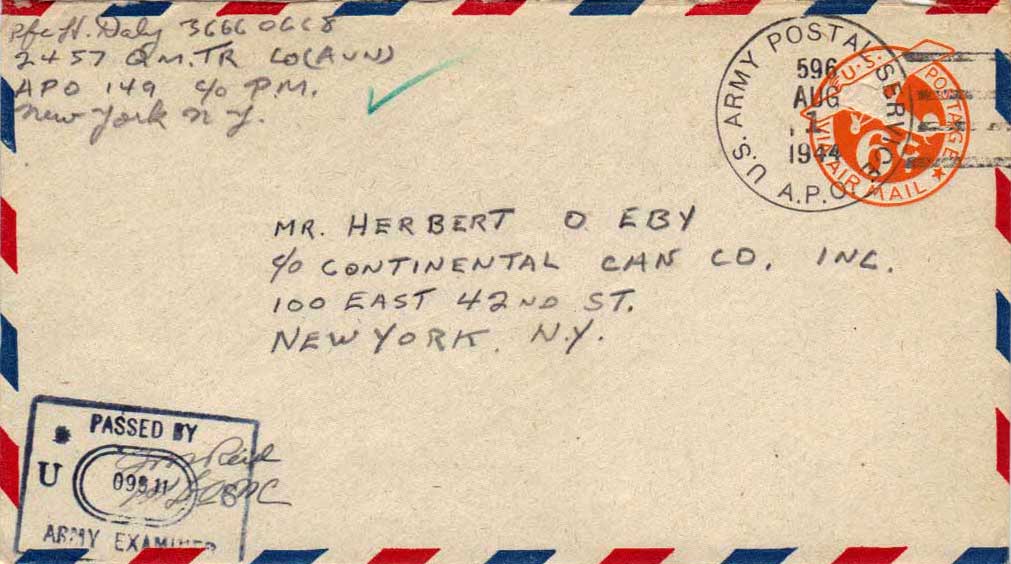 Pfc H. Daly 36660668
2457 Q.M. TR CO (AVN)
APO 149 c/o P.M.
New York N Y.
U.S. ARMY POSTAL SERVICE
596
AUG
1
1944
A.P.O.
U.S. POSTAGE
6¢
VIA AIR MAIL
MR. HERBERT O EBY
c/o CONTINENTAL CAN CO. INC.
100 EAST 42ND ST.
NEW YORK, N.Y.
PASSED BY
U S
09511
ARMY EXAMINER